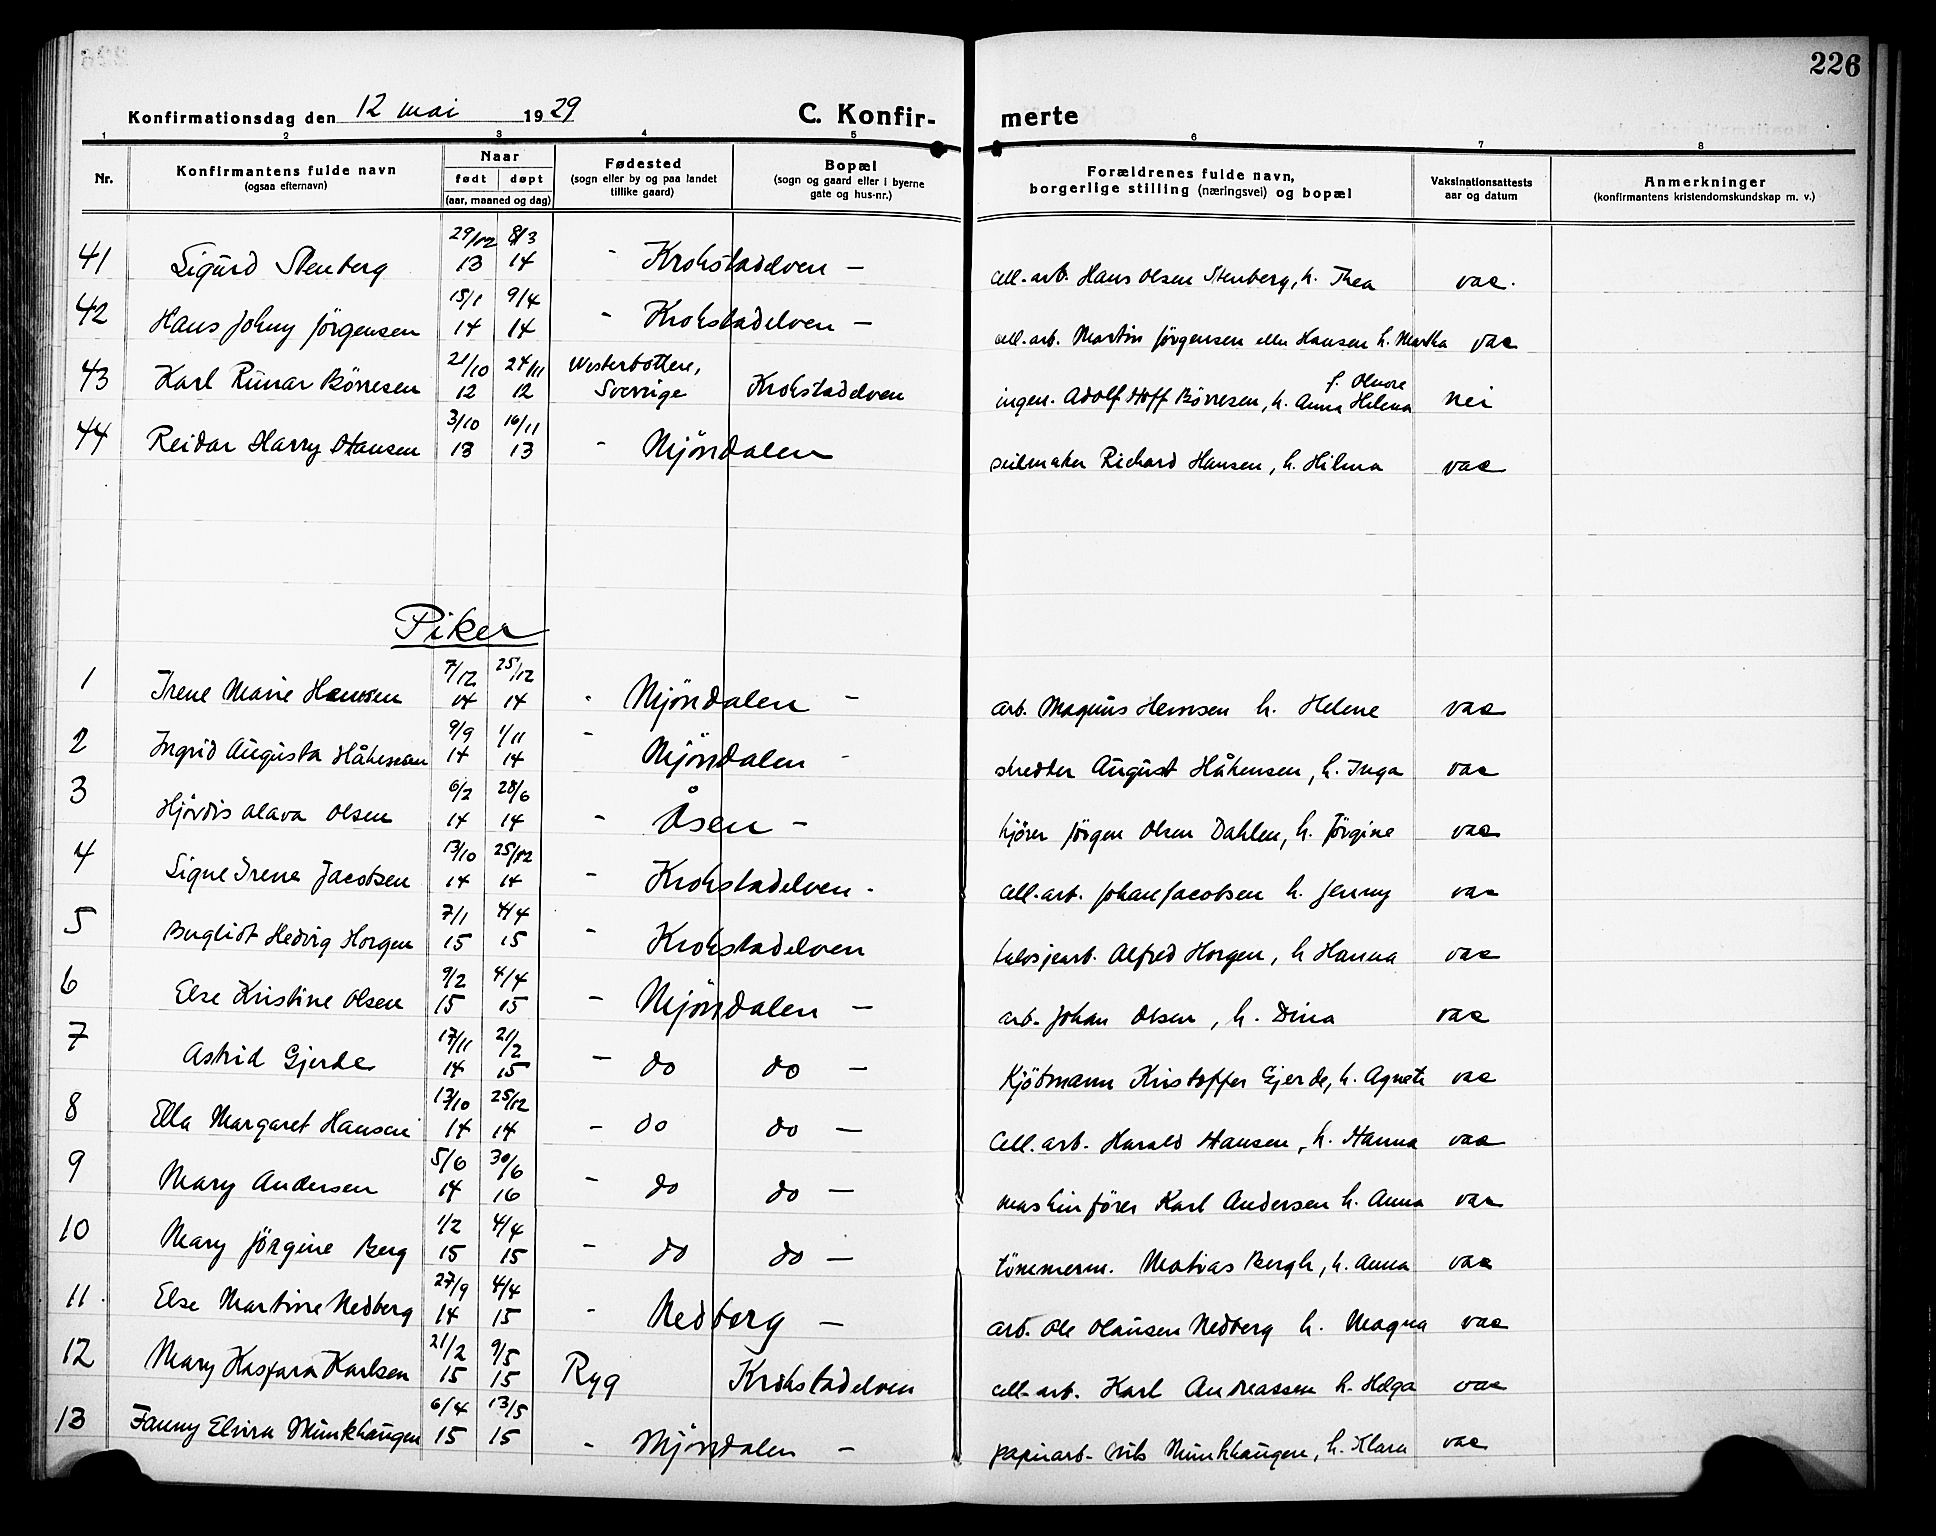 226
Konfirmationsdag den 12 mai 1929 C. Konfir- merte
1 2 3 4 5 6 7 8
Nr. Konfirmantens fulde navn (ogsaa efternavn) Naar født døpt (aar, maaned og dag) Fødested (sogn eller by og paa landet tillike gaard) Bopæl (sogn og gaard eller i byerne gate og hus-nr.) Forældrenes fulde navn, borgerlige stilling (næringsvei) og bopæl Vaksinationsattests aar og datum Anmerkninger (konfirmantens kristendomskundskap m. v.)
41 Sigurd Stenberg 29/12 13 8/3 14 - Krokstadelven - cell.-arb. Hans Olsen Stenberg, h. Thea vac.
42 Hans Johny Jörgensen 15/1 14 9/4 14 - Krokstadelven - cell.-arb. Martin Jörgensen eller Hansen h. Martha vac
43 Karl Runar Börresen 21/10 12 24/11 12 Westerbotten, Sverrige Krokstadelven ingen. Adolf Hoff Börresen, h. Anna Helena f. nei
44 Reidar Harry Hansen 3/10 13 16/11 13 - Mjöndalen seilmaker Richard Hansen, h. Hilma vac
Piker
1 Irene Marie Hansen 7/12 14 25/12 14 - Mjöndalen - arb. Magnus h. Helene vac
2 Ingrid Augusta Håkensen 9/9 14 1/11 14 - Mjöndalen - skredder August Håkensen, h. Inga vac
3 Hjördis Olava Olsen 6/2 14 28/6 14 - Åsen - kjörer Jörgen Olsen Dahlen, h. Jörgine vac
4 Signe Irene Jacobsen 13/10 14 25/12 14 - Krokstadelven - cell.-arb. Johan Jacobsen h. Jenny vac
5 Bergliot Hedvig Horgen 7/1 15 4/4 15 - Krokstadelven arb. Alfred Horgen, h Hanna vac
6 Else Kristine Olsen 9/2 15 4/4 15 - Mjöndalen - arb. Johan Olsen, h. Dina vac
7 Astrid Gjerde 17/11 14 21/2 15 - do do - Kjötmann Kristoffer Gjerde, h. Agnete vac
8 Ella Margaret Hansen 13/10 14 25/12 14 - do do - Cell. arb. Harald Hansen, h. Hanna vac
9 Mary Andersen 5/6 14 30/6 16 - do do - maskinförer Karl Andersen h. Anna vac
10 Mary Jörgine Berg 1/2 15 4/4 15 - do do - tömmerm. Mathias Bergh, h. Anna vac
11. Else Martine Nedberg 27/9 14 4/4 15 - Nedberg - arb. Ole Olausen Nedberg h. Magna vac
12 Mary Kaspara Karlsen 21/2 15 9/5 15 Ryg Krokstadelven cell.-arb. Karl Andreassen h. Helga vac
13 Fanny Elvira Munkhaugen 6/4 15 13/5 15 - Mjöndalen - papirarb. Nils Munkhaugen, h. Klara vac